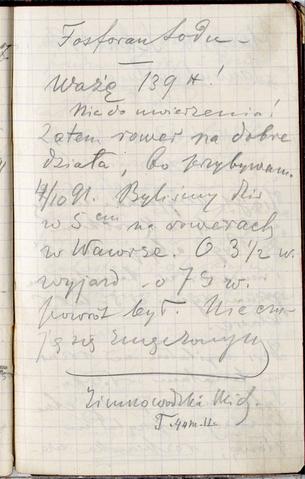 Fosforan Sodu –
Ważę 139 H!
Nie do uwierzenia!
Zatem rower na dobre
działa, bo przybywam.
4/10 91. Byliśmy dziś
w 5 cm na rowerach
w Wawrze. O 3 1/2 w.
wyjazd – o 7 g w.
powrót był. Nie czu-
ję się zmęczonym